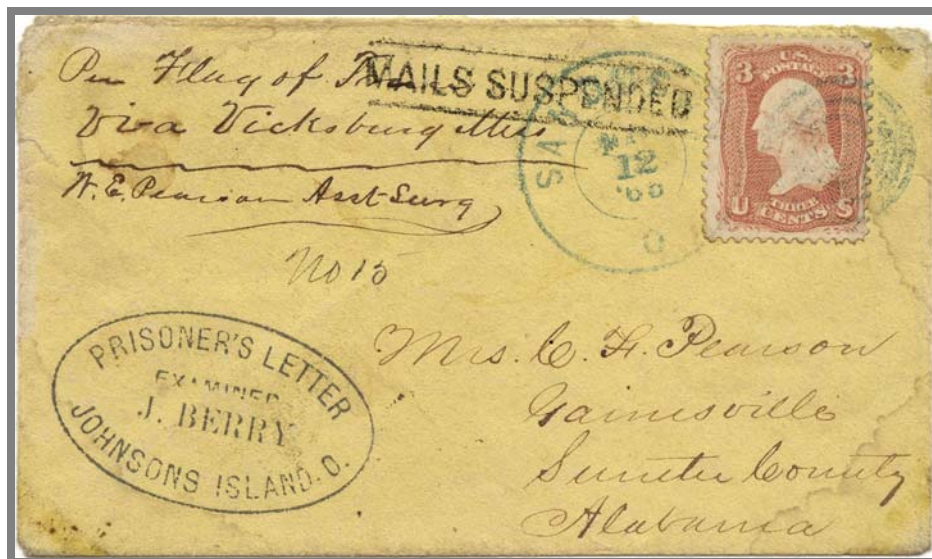 Per Flag of Truce
MAILS SUSPENDED
Via Vicksburg Miss
W. E. Pearson Asst Surg
No 15
SA
12
O
3 U.S. POSTAGE 3
U THREE CENTS S
PRISONER'S LETTER
EXAMINED
J. BERRY
JOHNSONS ISLAND. O.
Mrs. C. F. Pearson
Gainesville
Sumter County
Alabama